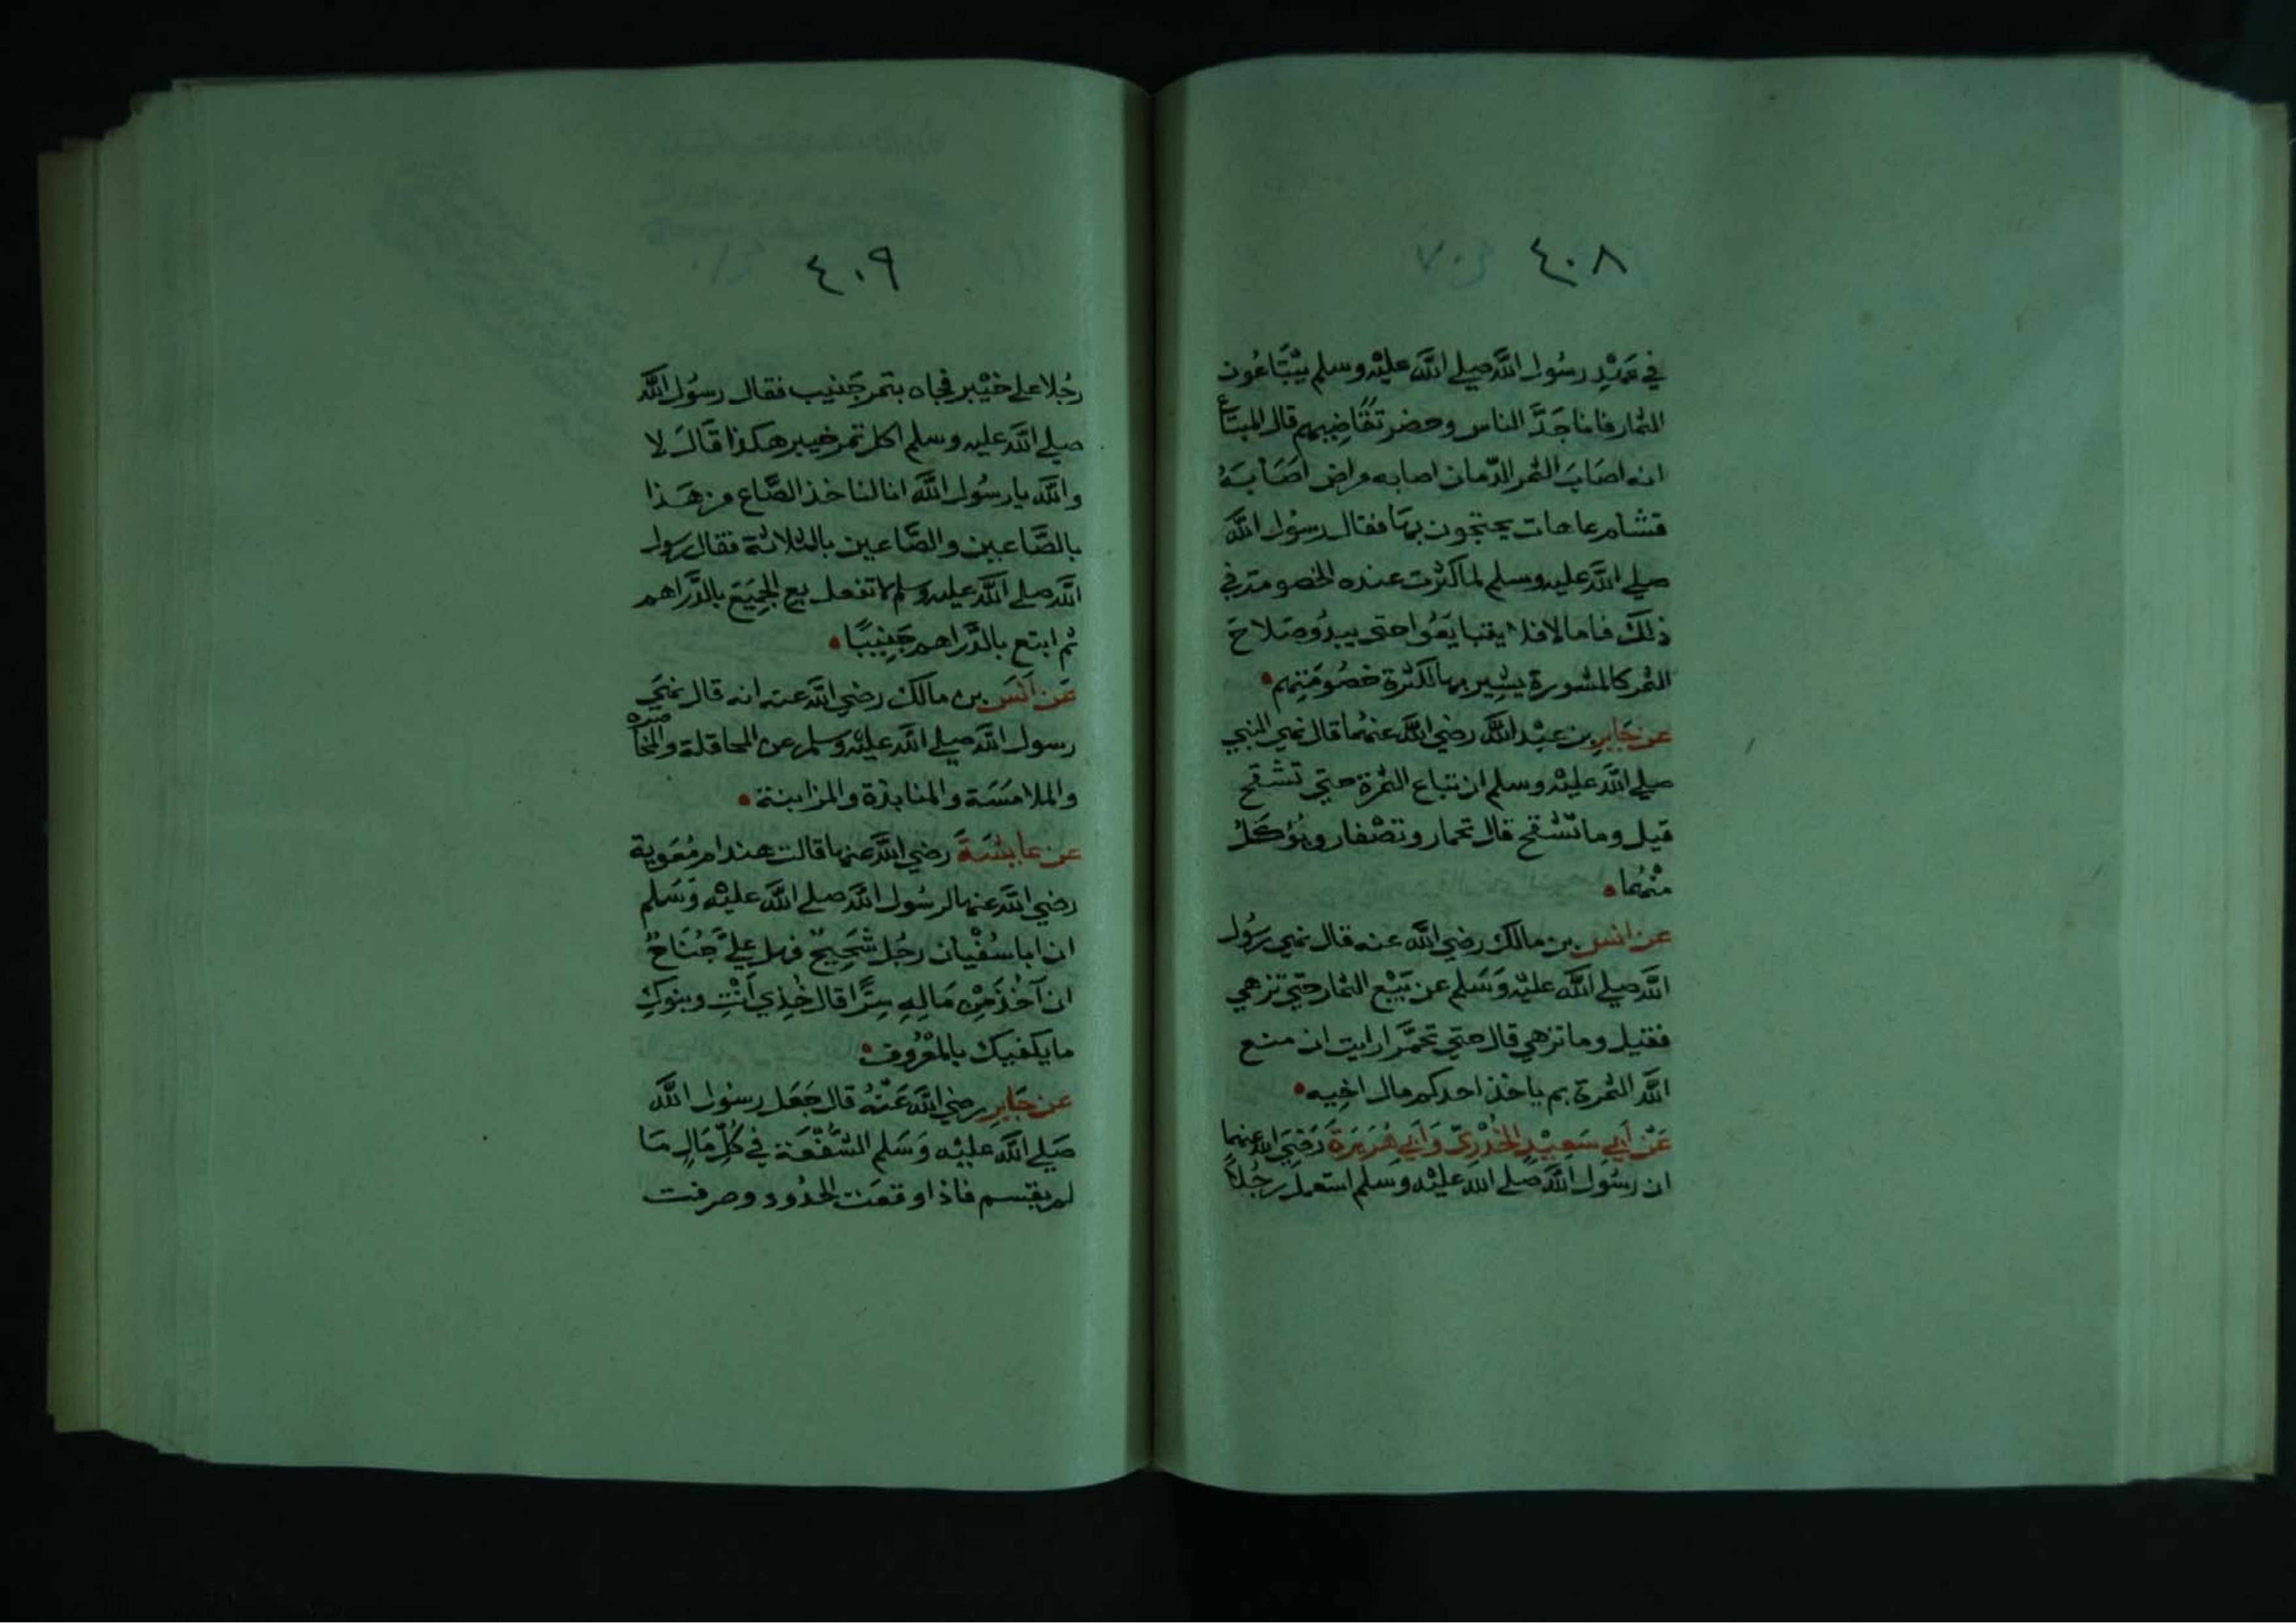 ٤٠٨
في عَهْدِ رسُول اللَّه صلي اللَّه عليْه وسلم يبْتَاعُون
الثمار فاذا جَدَّ الناس وحضر تقاضيهم قال المبتاع
انه اصَابَ الثمر الدّمان اصابه مراض اصَابَهُ
قشام عاهات يحتجون بهَا فقال رسُول اللَّه
صلي اللَّه عليه وسلم لما كثرت عنده الخصومة في
ذلك فاما لا فلا يتبايَعُوا حتى يبدُو صَلاحَ
الثمر كالمشورة يشير بها لكثرة خصُومَتِهم
عن جَابِر بن عبْد اللَّه رضي اللَّه عنهُما قال نهي النبي
صلي اللَّه عليْه وسلم ان تباع الثمرة حتي تشقح
قيل وما تشقح قال تحمار وتصْفار ويُؤكَلُ
منْهُا
عن انس بن مالك رضي اللَّه عنه قال نهي رسُول
اللَّه صلي اللَّه عليْه وَسَلم عن بَيْع الثمار حتي تزهي
فقيل وما تزهي قال حتي تحمَّر ارايت ان منع
اللَّه الثمرة بم ياخذ احدكم مال اخِيه
عَنْ أبي سَعِيْدٍ الخُدْرِيّ وَأبي هُرَيرَةَ رَضيَ الله عنهما
ان رسُول اللَّه صَلي الله عليْه وسَلم استعمل رجُلاً
٤٠٩
رجُلا علي خيْبر فجاه بتمر جَنيب فقال رسوُل اللَّه
صلي اللَّه عليه وسلم اكل تمر خيبر هكذا قَالَ لا
واللَّه يا رسُول اللَّه انا لناخذ الصَّاع من هَذا
بالصَّاعين والصَّاعين بالثلاثة فقال رسول
اللَّه صلي اللَّه عليه وسلم لا تفعل بع الجميَعَ بالدَّراهم
ثم ابتع بالدَّراهم جَنِيبًا
عَن اَنَس بن مالك رضي اللَّه عنه انه قال نهَي
رسول اللَّه صلي اللَّه عليْه وسلم عن المحاقلة والمخاضرة
والملامَسَة والمنابذة والمزابنة
عن عايشَةَ رضي اللَّه عنها قالت هند ام مُعَوية
رضي اللَّه عنها لرسُول اللَّه صلي اللَّه عليْه وَسَلم
ان ابا سُفْيان رجُل شَحِيحٌ فهل عليَّ جُنَاحٌ
ان آخُذَ مِنْ مَالِهِ سِرًّا قال خُذِي أنْتِ وبنوكِ
ما يكفيك بالمَعْرُوف
عن جَابِر رضي اللَّه عَنْهُ قال جَعَل رسُول اللَّه
صَلي اللَّه عليْه وَسَلم الشُفْعَة في كُلّ مَالٍ مَا
لم يقسم فاذا وقعَت الحدُود وصرفت